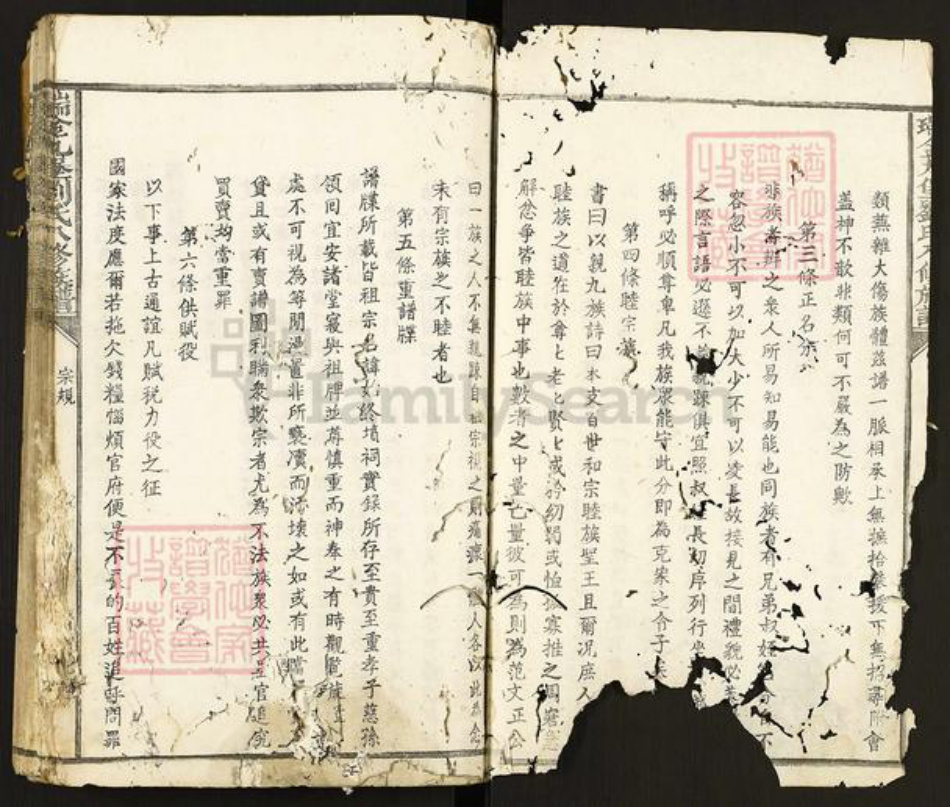 類蕪雜大傷族體茲譜一脈相承上無攀援下無招尋附會
蓋神不歆非類何可不嚴為之防歟
第三條正名分
非族者辨之眾人所易知易能也同族者有兄弟叔姪名分不
容忽小不可以加大少不可以凌長故接見之間禮貌必
之際言語必遜不論親踈俱宜照叔姪長幼序列行坐
稱呼必順尊卑凡我族眾能守此分即為克家之令子矣
第四條睦宗族
書曰以親九族詩曰本支百世和宗睦族聖王且爾况庶人
睦族之道在於尊七老七賢七或矜幼弱或恤孤寡推之周窘急
解忿爭皆睦族中事也數者之中量己量彼可為則為范文正公
曰一族之人不無親踈自祖宗視之則痛癢一人各以此為念
未有宗族之不睦者也
第五條重譜牒
譜牒所載皆祖宗名諱丸終墳祠實錄所存至貴至重孝子慈孫
領囘宜安諸堂寢與祖牌並尊慎重而神奉之有時觀覽
處不可視為等閒過置非所褻瀆而污壞之如或有此
貸且或有賣譜圖利瞞眾欺宗者尤為不法族眾必共呈官追究
買賣均當重罪
第六條供賦役
以下事上古通誼凡賦税力役之征
國家法度應爾若拖欠錢糧惱煩官府便是不良的百姓追呼問罪
宗規
瑞金九堡劉氏八修族譜
FamilySearch
譜學會
收藏